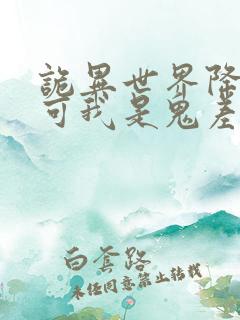 詭異世界降
可我是鬼差
白套路
未經同意禁止轉載